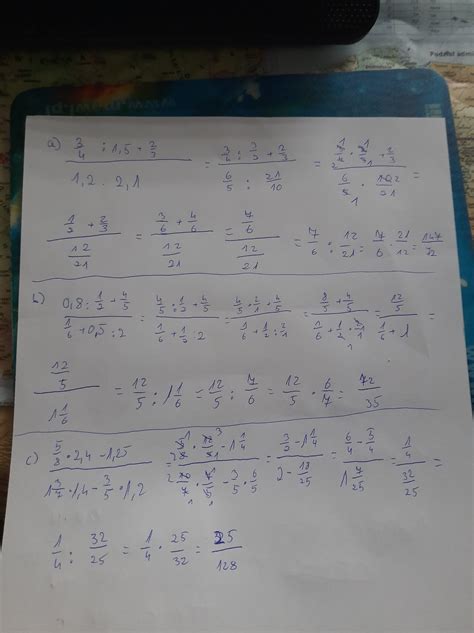 a) (3/4 : 1,5 + 2/3)/(1,2 : 2,1) = (3/4 : 3/2 + 2/3)/(6/5 : 21/10) = (1/2 · 1/1 + 2/3)/(6/1 · 2/21) =
(1/2 + 2/3)/(12/21) = (3/6 + 4/6)/(12/21) = (7/6)/(12/21) = 7/6 : 12/21 = 7/6 · 21/12 = 147/72
b) (0,8 : 1/2 + 4/5)/(1/6 + 0,5 : 2) = (4/5 : 1/2 + 4/5)/(1/6 + 1/2 : 2) = (4/5 · 2/1 + 4/5)/(1/6 + 1/2 · 2/1) = (8/5 + 4/5)/(1/6 + 1/2 · 2/1) = (12/5)/(1/6 + 1) =
(12/5)/(1 1/6) = 12/5 : 1 1/6 = 12/5 : 7/6 = 12/5 · 6/7 = 72/35
c) (5/8 · 2,4 - 1,25)/(1 3/7 · 1,4 - 3/5 · 1,2) = = (3/2 - 1 1/4)/(2 - 18/25) = (6/4 - 5/4)/(1 7/25) = (1/4)/(32/25) =
1/4 : 32/25 = 1/4 · 25/32 = 25/128